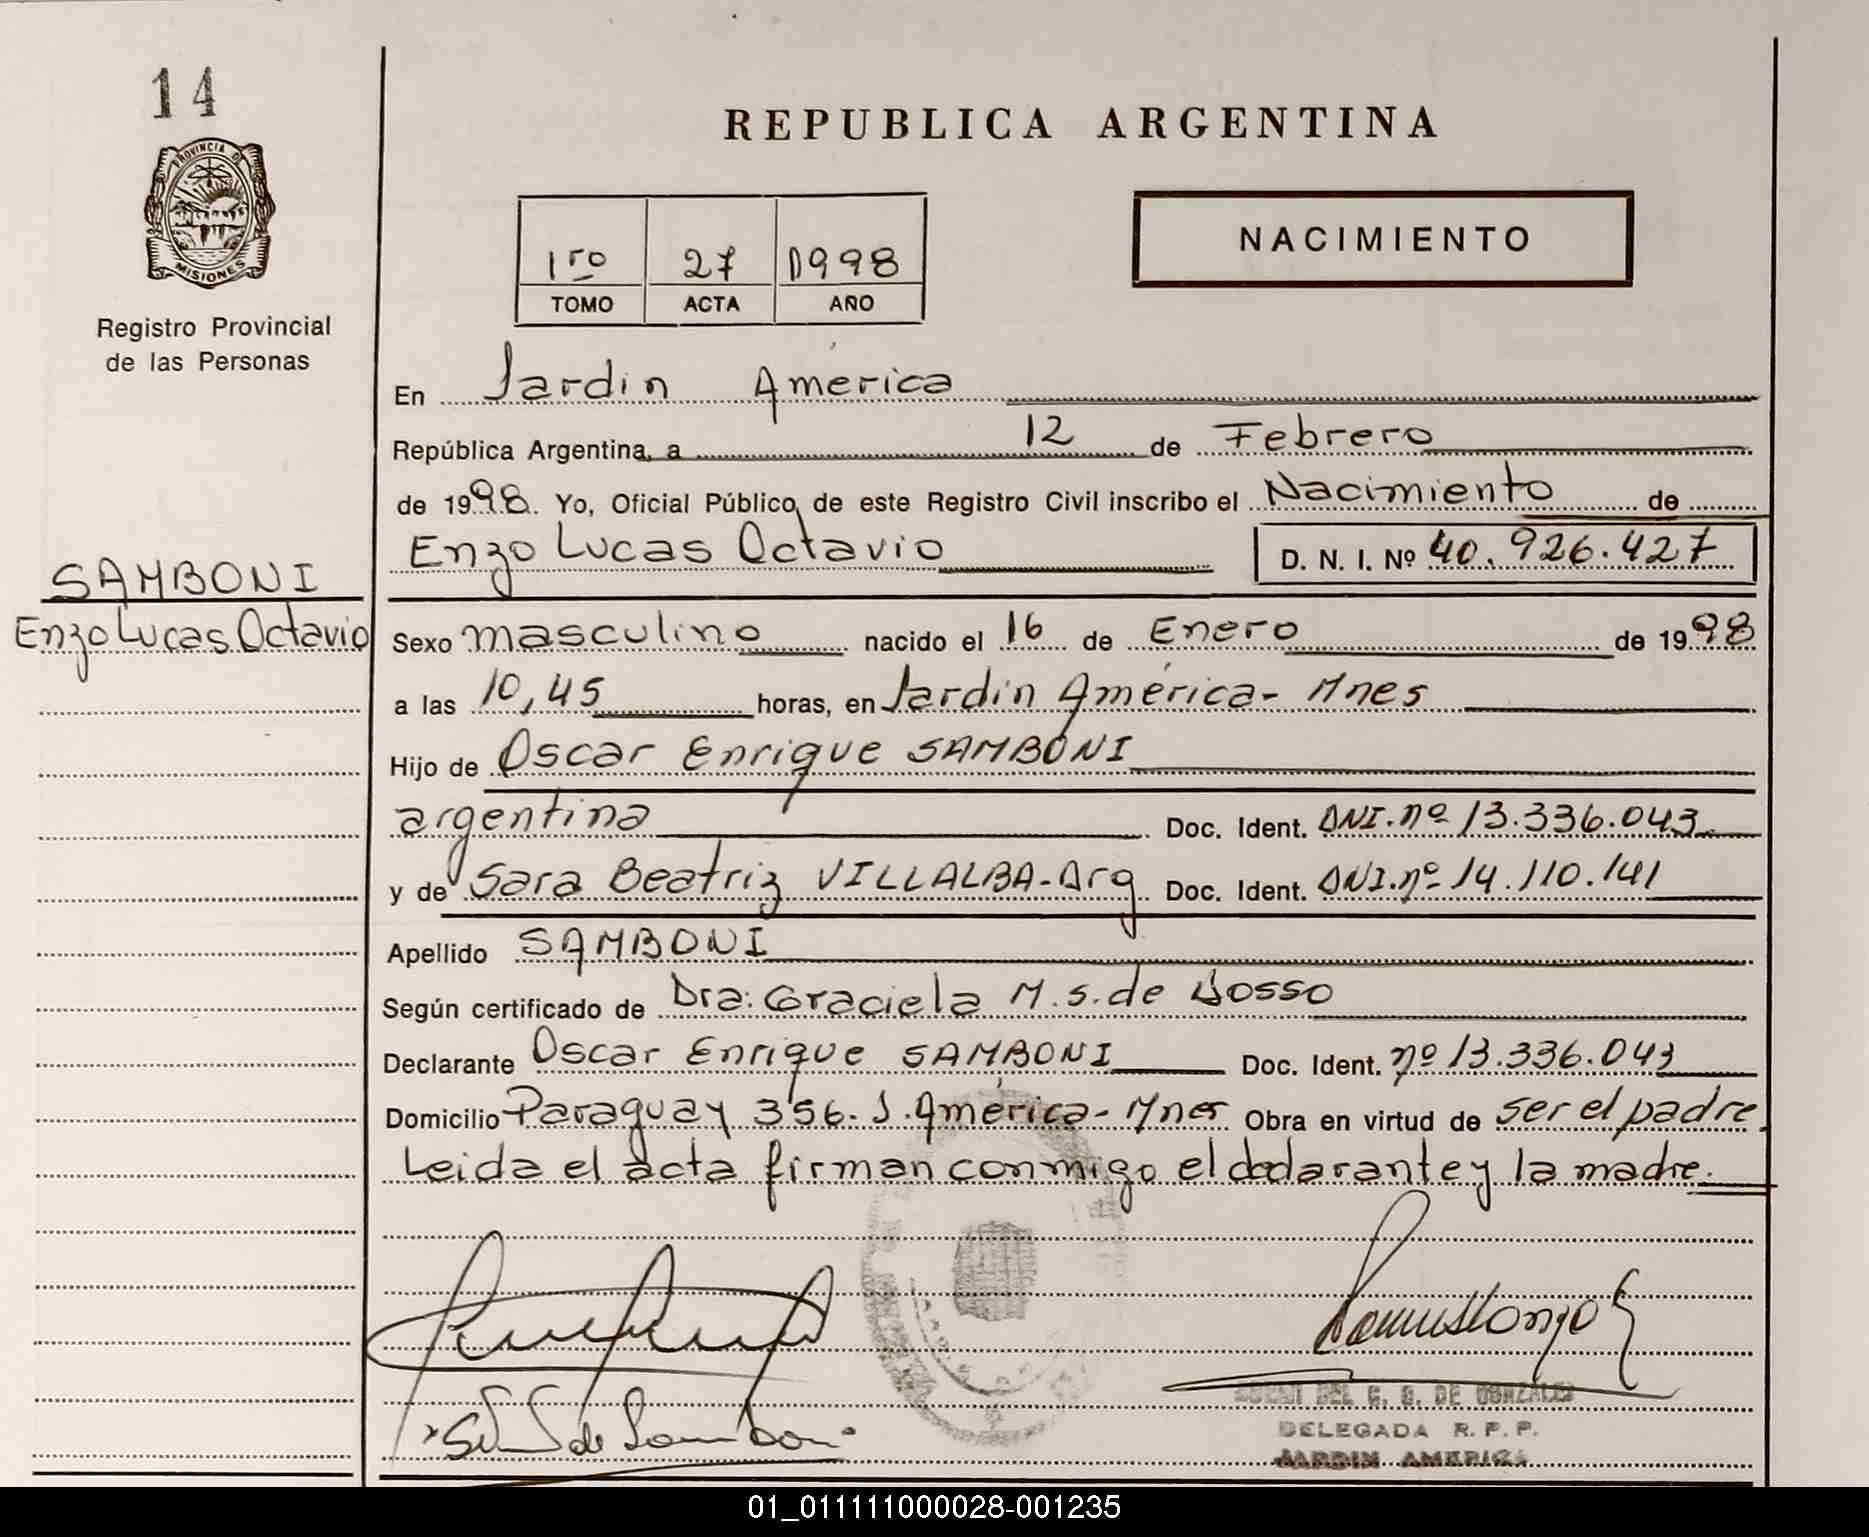 14
PROVINCIA DE
MISIONES
Registro Provincial
de las Personas
SAMBONI
Enzo Lucas Octavio
REPUBLICA ARGENTINA
1ro 27 1998
TOMO ACTA AÑO
NACIMIENTO
En Jardin América
República Argentina, a 12 de Febrero
de 1998. Yo, Oficial Público, de este Registro Civil inscribo el Nacimiento de
Enzo Lucas Octavio D. N. I. Nº 40.926.427
Sexo masculino nacido el 16 de Enero de 1998
a las 10,45 horas, en Jardin América- Mnes
Hijo de Oscar Enrique SAMBONI
argentina Doc. Ident. DNI.nº 13.336.043
y de Sara Beatriz VILLALBA-Arg Doc. Ident. DNI.nº 14.110.141
Apellido SAMBONI
Según certificado de Dra: Graciela M.S. de
Declarante Oscar Enrique SAMBONI Doc. Ident. nº 13.336.043
Domicilio Paraguay 356. J. América- Mnes Obra en virtud de ser el padre.
Leida el acta firman conmigo el declarante y la madre.
DEL C. G. DE GONZALEZ
DELEGADA R. P. P.
JARDIN AMERICA
01_011111000028-001235